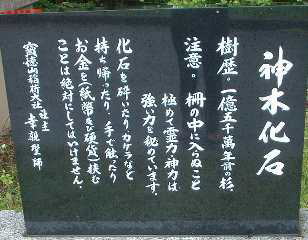 神木化石
樹歴・一億五千萬年前の杉、
注意。柵の中に入らぬこと
極めて霊力神力は
強い力を秘めています。
化石を砕いたりカケラなど
持ち帰ったり、手で触たり
お金を紙幣及び硬貨を挟む
ことは絶対にしてはいけません。
宝徳山稲荷大社 社主
幸親聖師